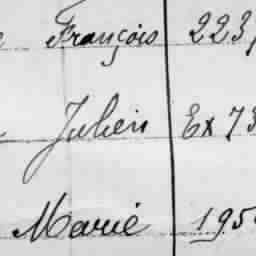 François 223
Julien Ex 73
Marie 195